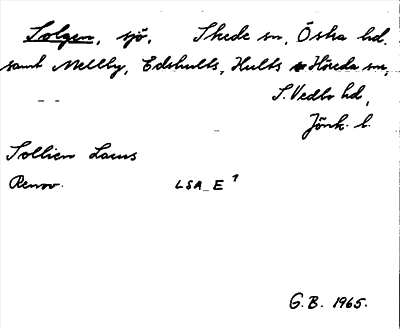 Solgen, sjö. Skede sn, Östra hd.
samt Mellby, Edshults, Hults o Höreda sn,
S. Vedbo hd,
Jönk. l.
Sollien Lacus
Renov. LSA_E 1
G.B. 1965.